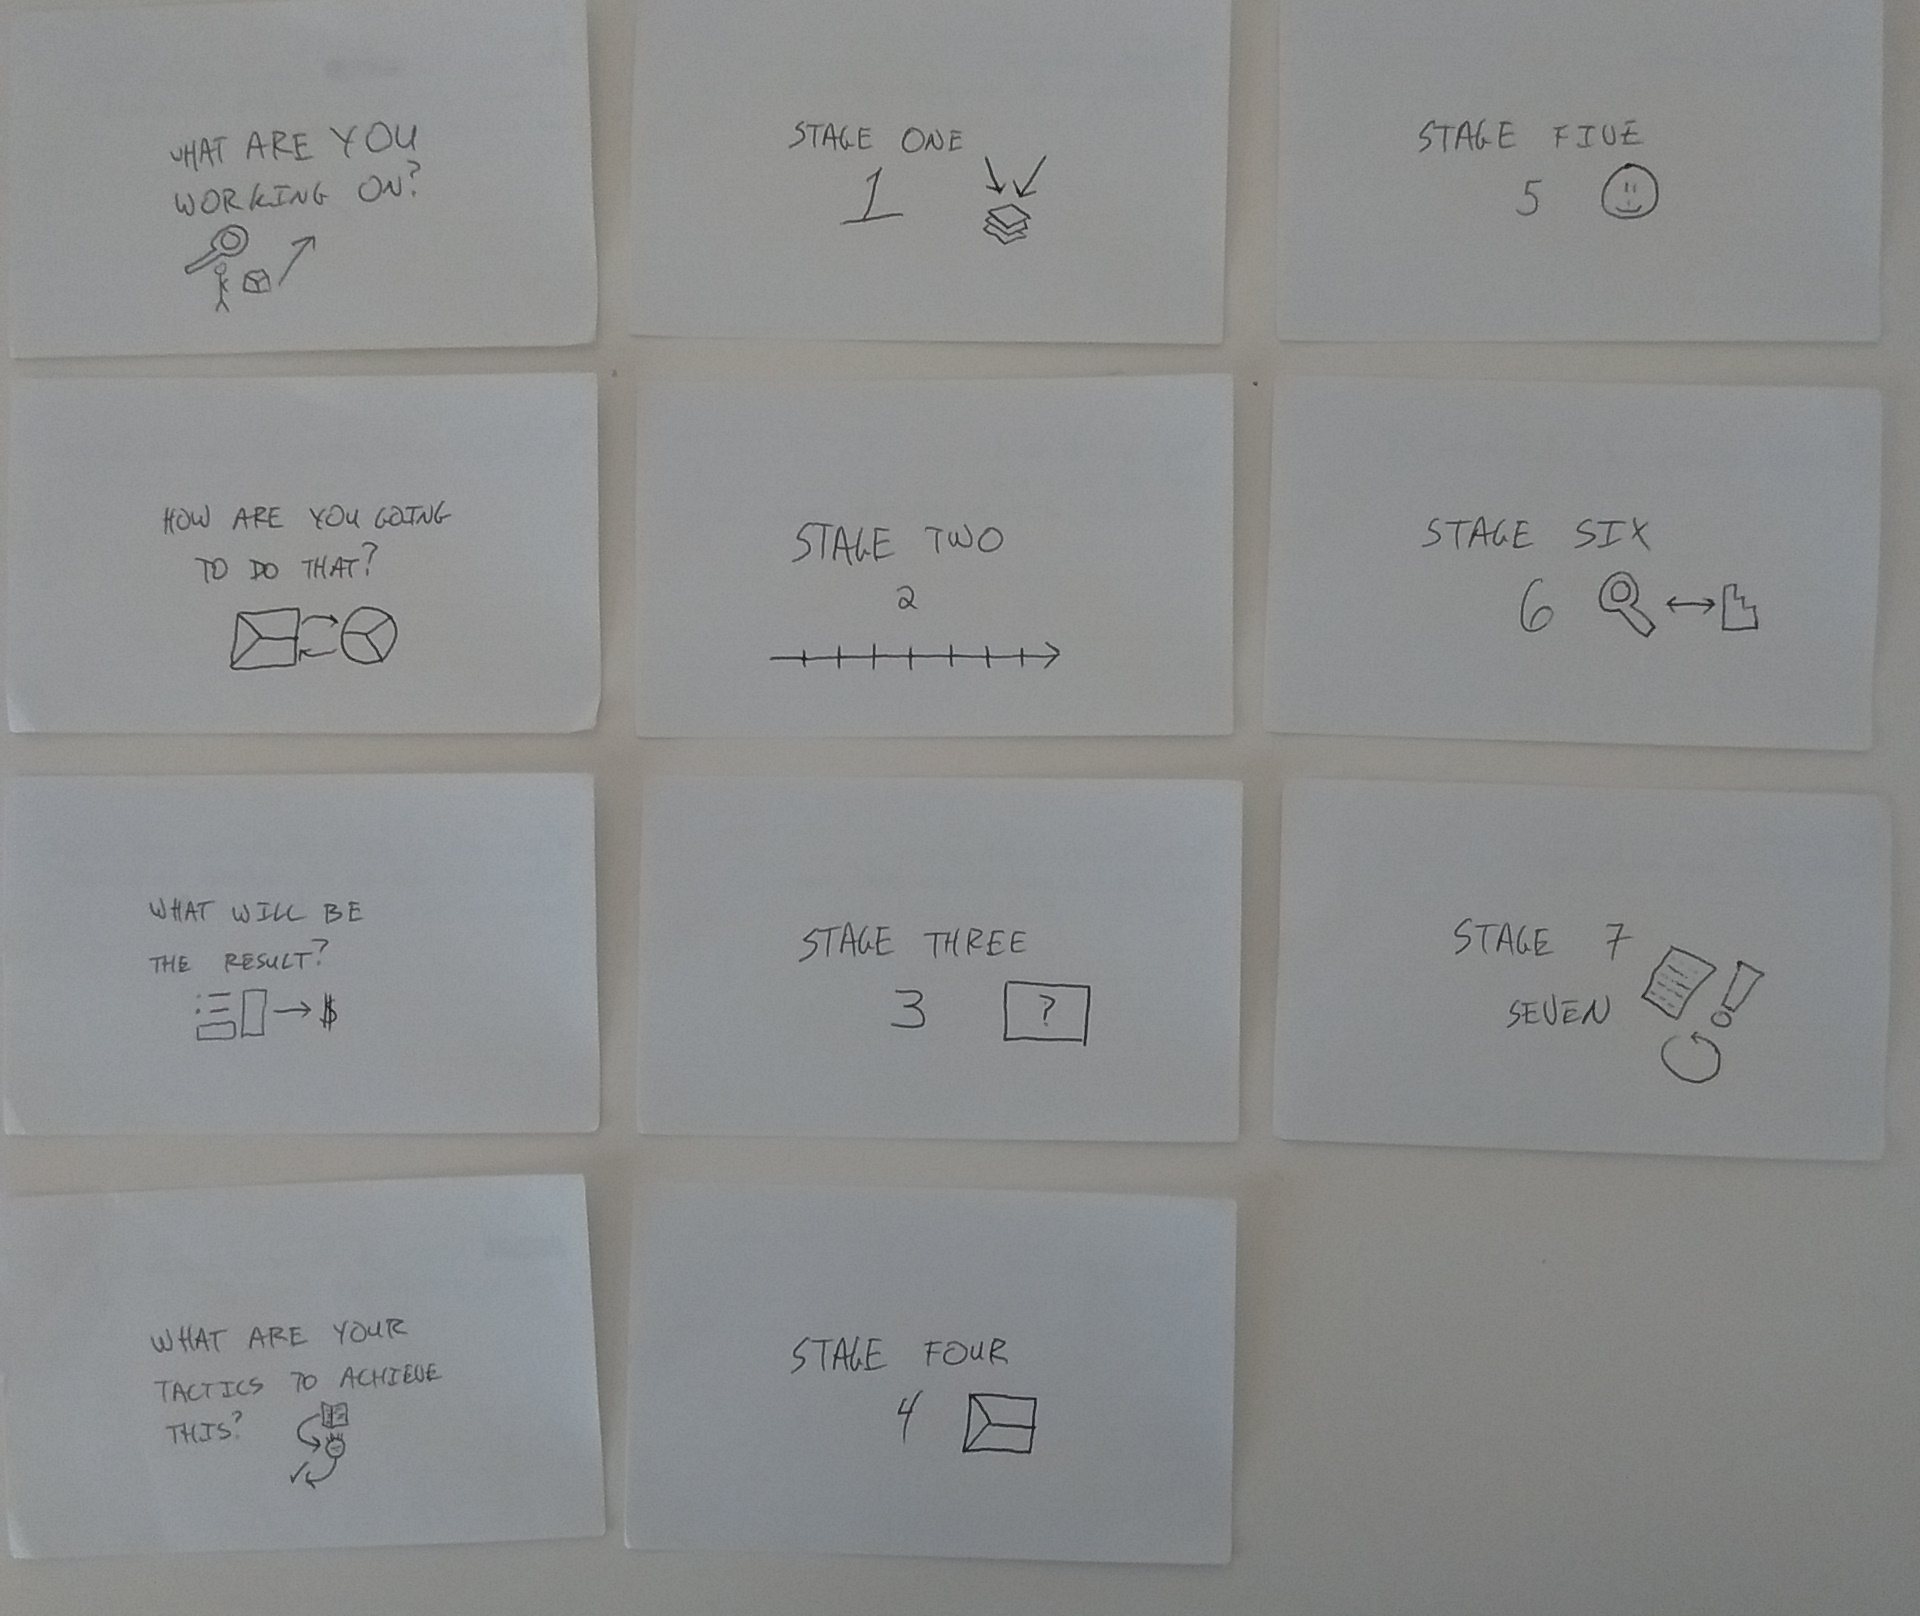 WHAT ARE YOU
WORKING ON?
HOW ARE YOU GOING
TO DO THAT?
WHAT WILL BE
THE RESULT?
$
WHAT ARE YOUR
TACTICS TO ACHIEVE
THIS?
STAGE ONE
1
STAGE TWO
2
STAGE THREE
3
?
STAGE FOUR
4
STAGE FIVE
5
STAGE SIX
6
STAGE 7
SEVEN
!